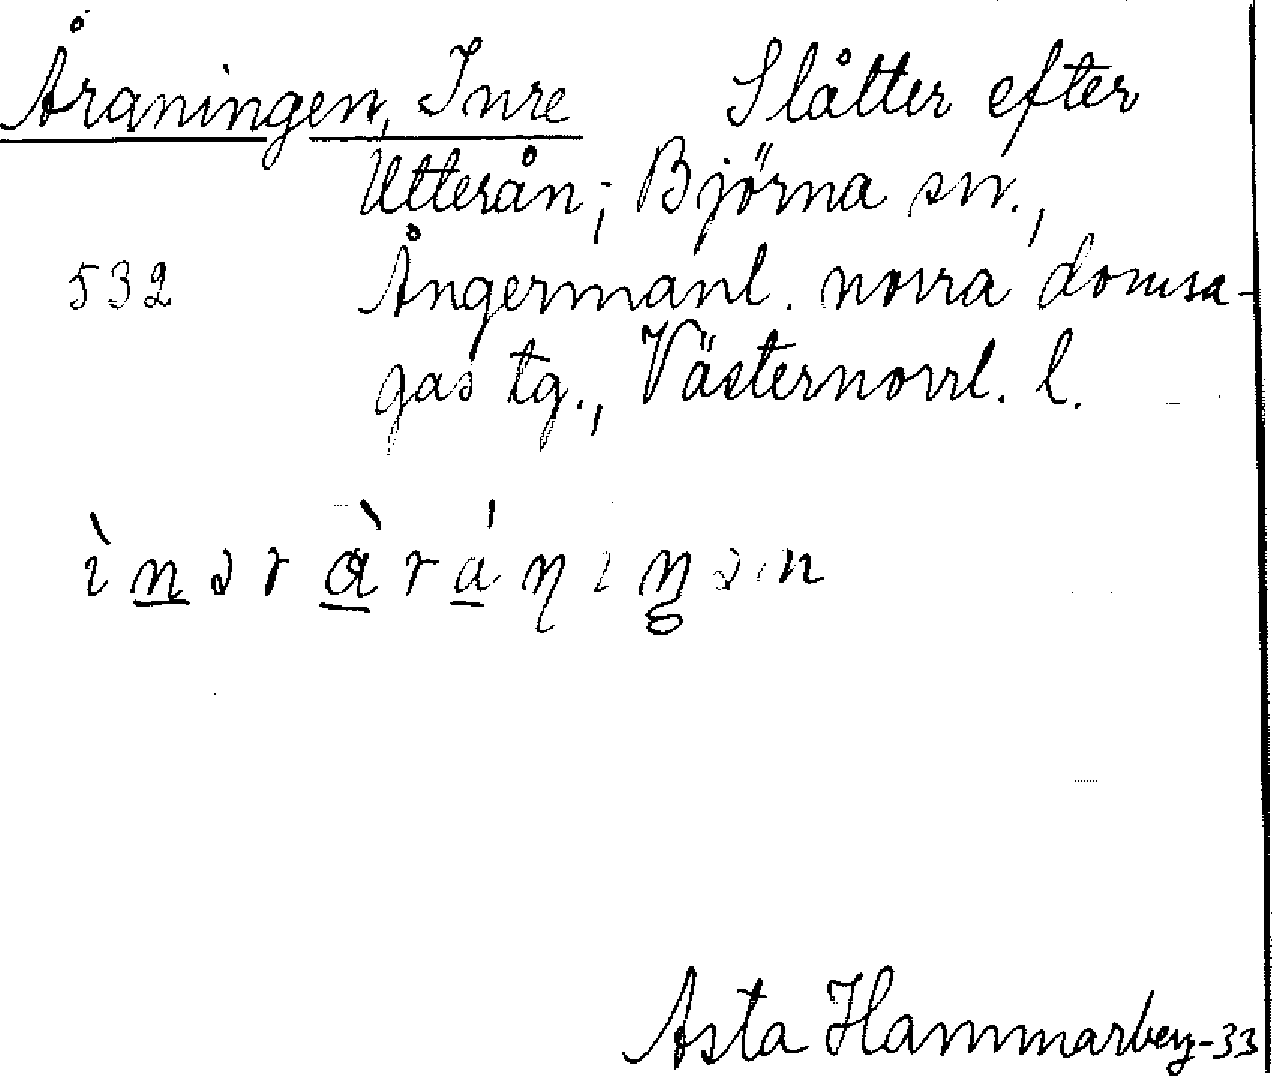 Åraningen, Inre Slåtter efter
Utterån; Björna sn.,
532 Ångermanl. norra domsa-
gas tg., Västernorrl. l.
Asta Hammarberg-33